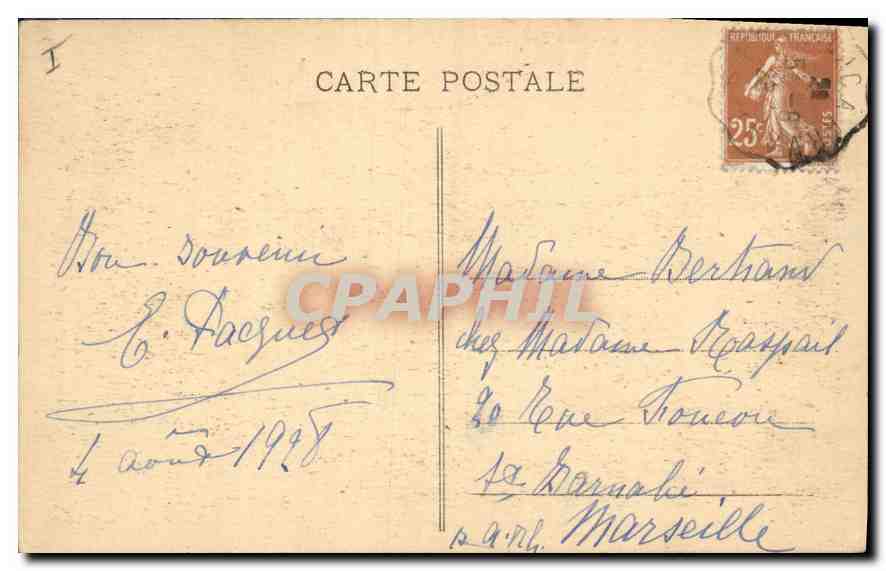 I
CARTE POSTALE
REPUBLIQUE FRANÇAISE
25c
POSTES
Bon souvenir
E. Pacquet
4 août 1928
Madame Bertrand
chez Madame Raspail
20 Rue
St Barnabé
Marseille
CPAPHIL